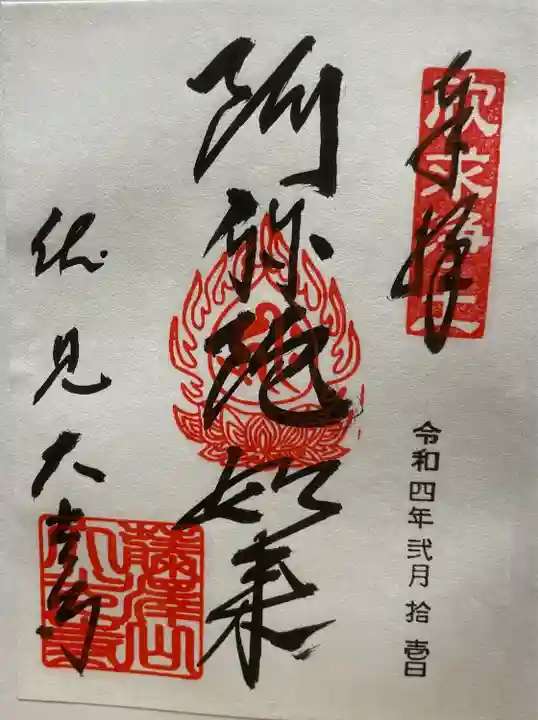 奉拝
欣求浄土
令和四年弐月拾壱日
阿弥陀如来
伏見大